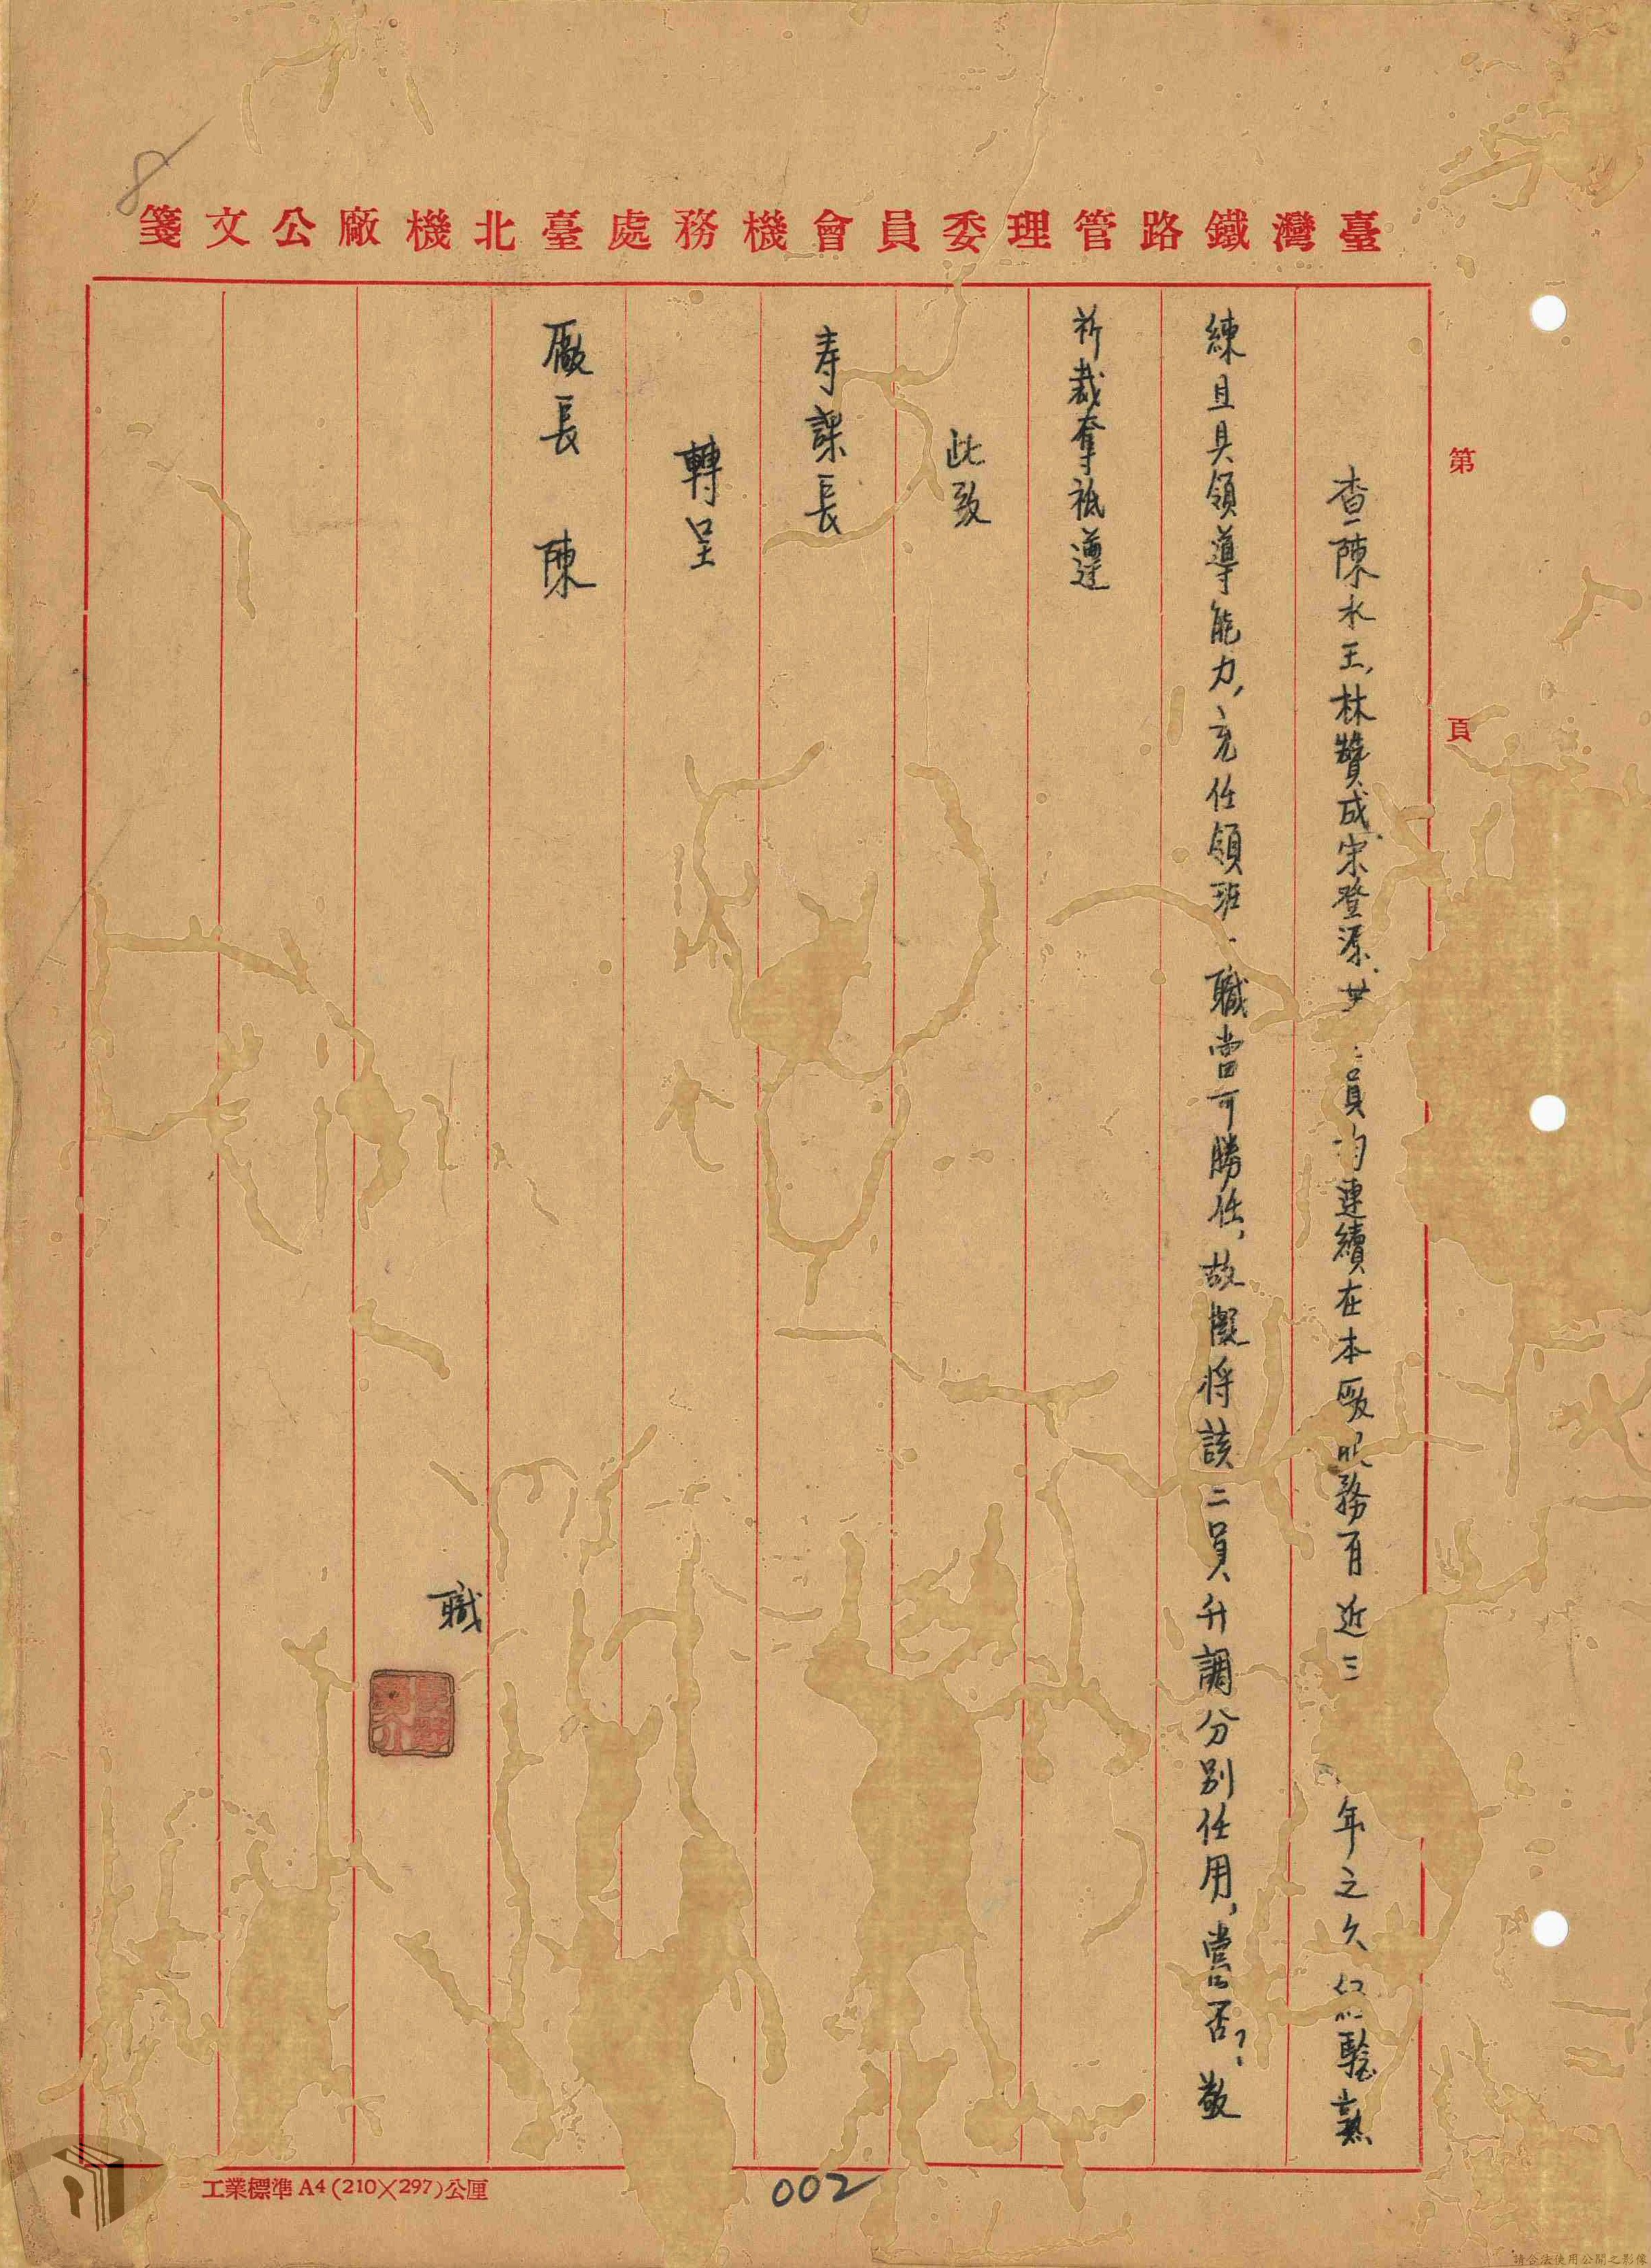 8
臺灣鐵路管理委員會機務處臺北機廠公文箋
第 頁
查陳水王,林贊成宋登源 員均連續在本廠服務有近三 年之久經驗熟
練且具領導能力,充任領班.職當可勝任,故擬將該二員升調分別任用,當否?敬
祈裁奪祗遵
此致
寿課長
轉呈
廠長 陳
職
工業標準A4(210×297)公厘
002
請合法使用公開之影像